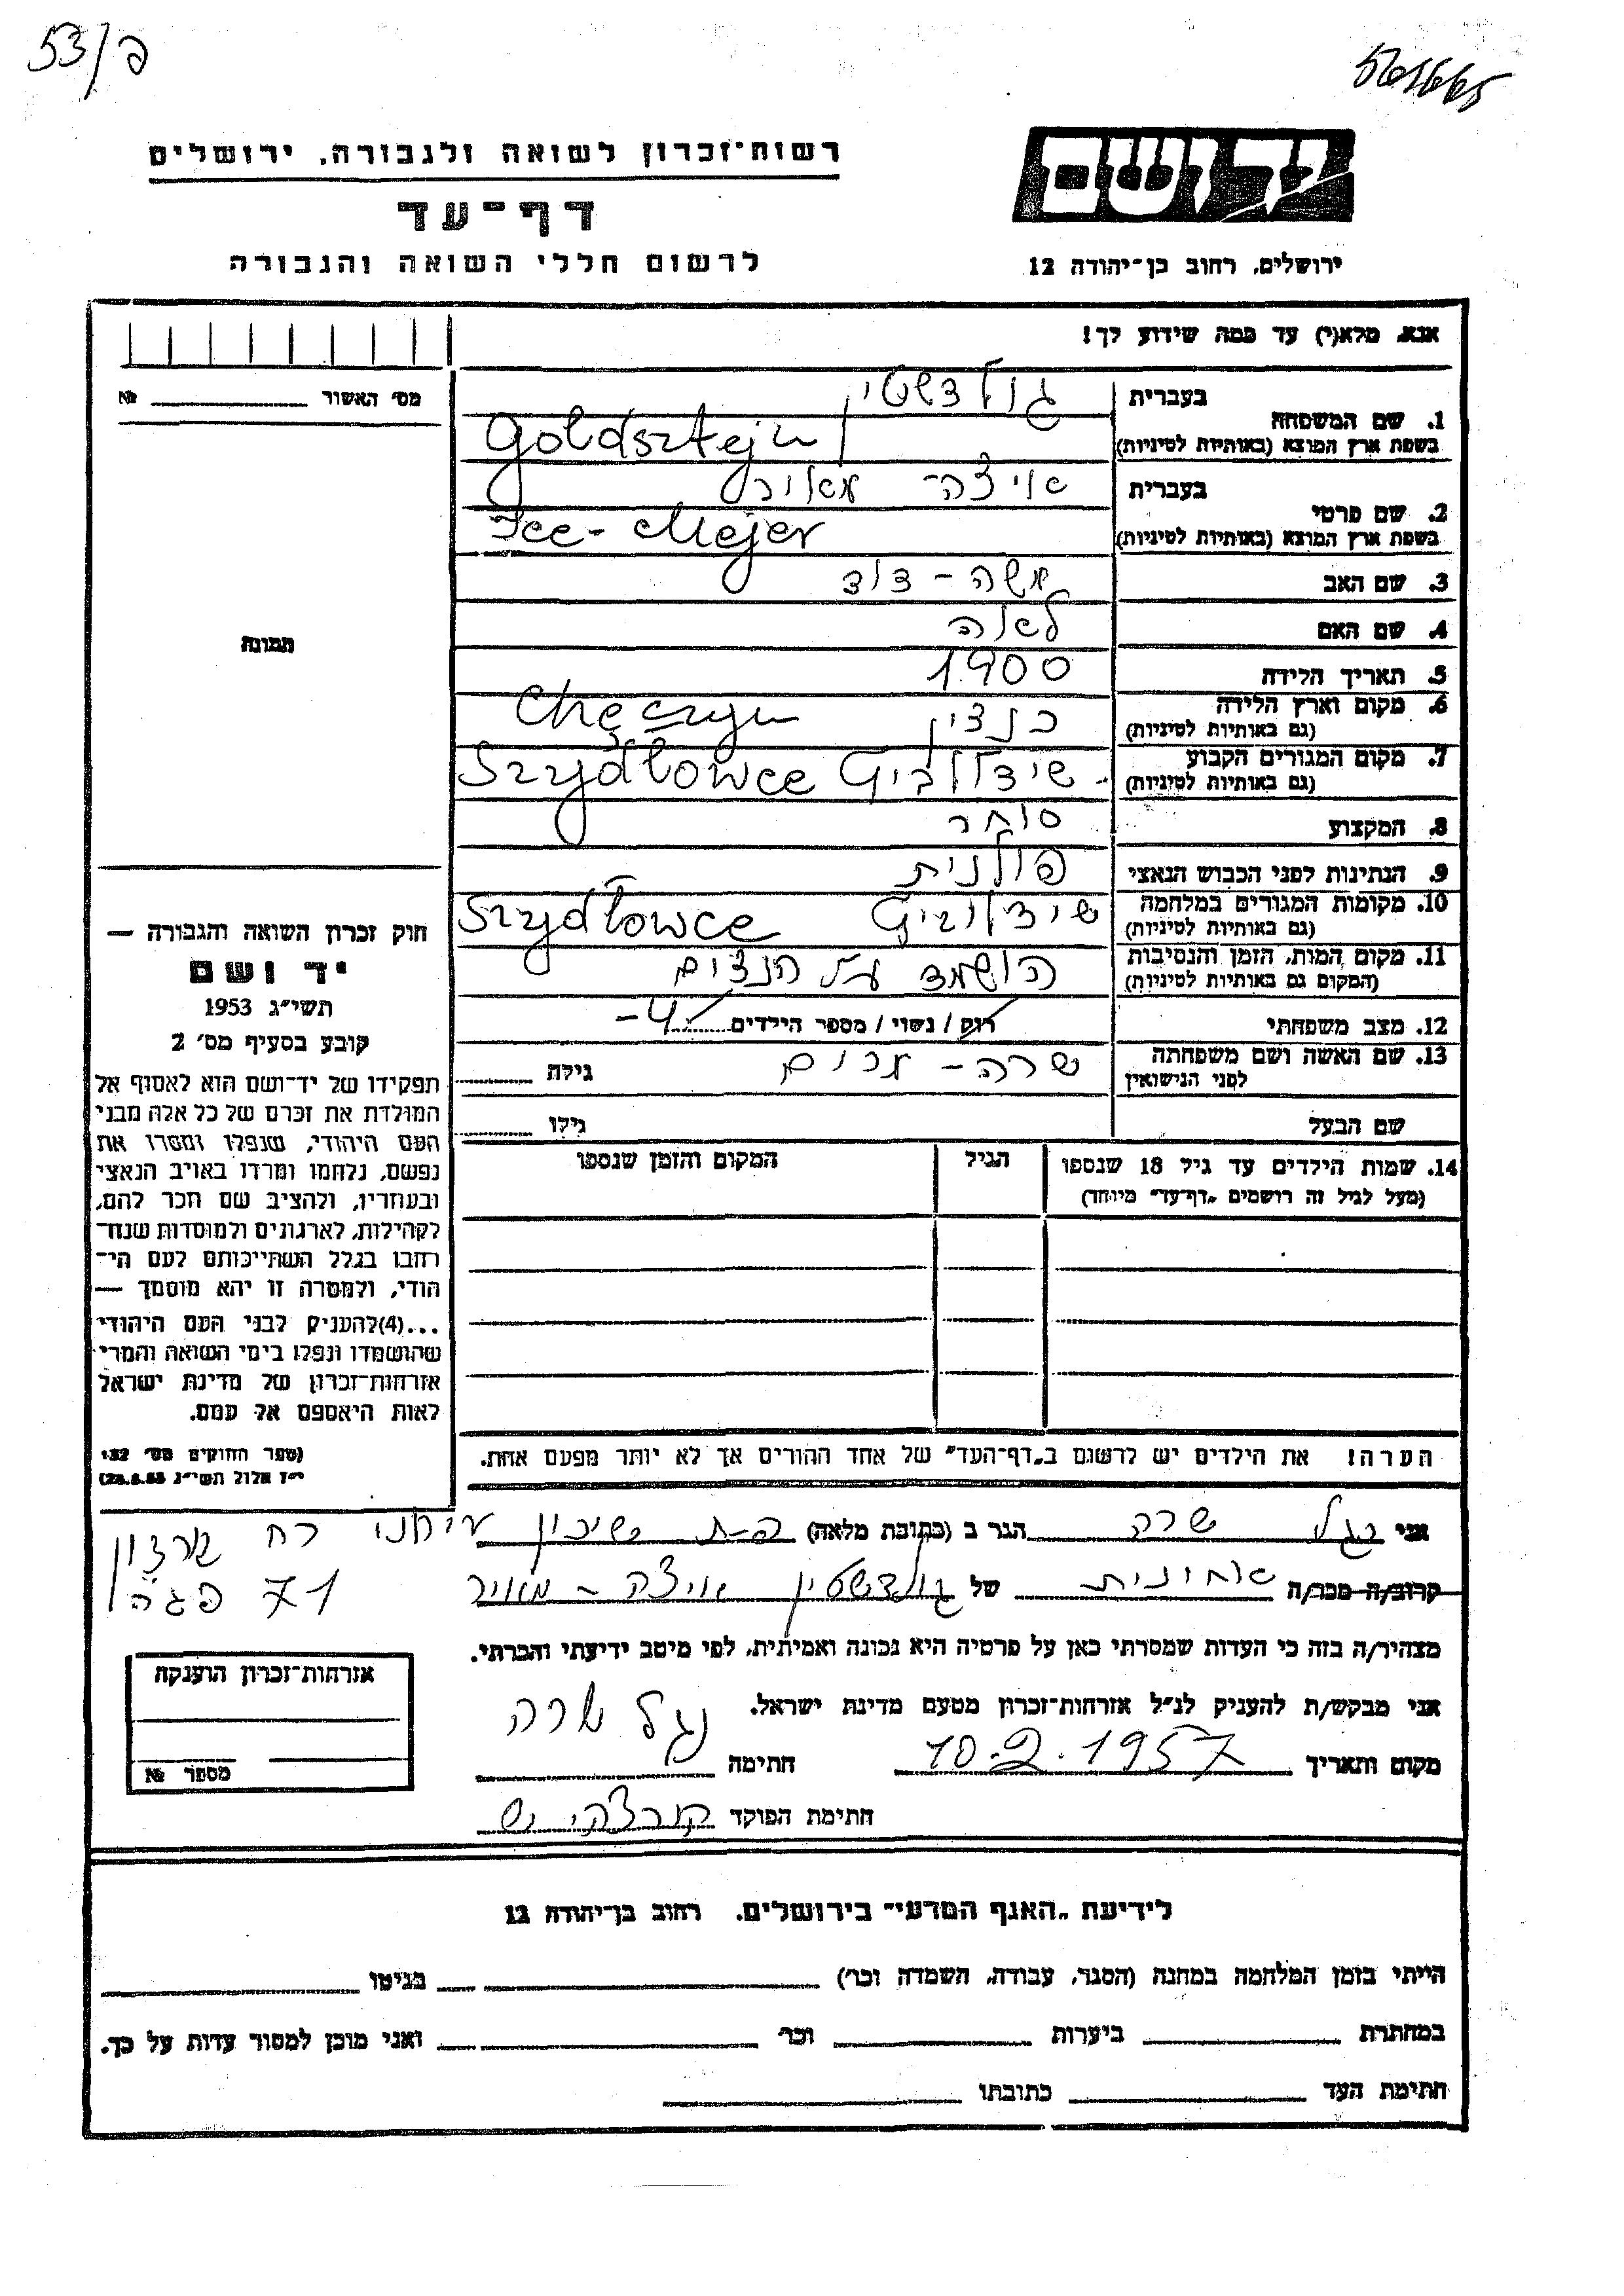 53/פ
רשות-זכרון לשואה ולגבורה, ירושלים
דף-עד
לרשום חללי השואה והגבורה
יד ושם
ירושלים, רחוב בן-יהודה 12
אנא, מלא(י) עד כמה שידוע לך!
מס׳ האשור № 
1. שם המשפחה
בעברית גולדשטיין
בשפת ארץ המוצא (באותיות לטיניות) Goldsztejn
2. שם פרטי
בעברית איצה - מאיר
בשפת ארץ המוצא (באותיות לטיניות) Ice - Mejer
3. שם האב משה - דוד
4. שם האם לאה
5. תאריך הלידה 1900
6. מקום וארץ הלידה
(גם באותיות לטיניות) Chęczyn
7. מקום המגורים הקבוע
(גם באותיות לטיניות) שידלוביץ Szydłowce
8. המקצוע סוחר
9. הנתינות לפני הכבוש הנאצי פולנית
10. מקומות המגורים במלחמה
(גם באותיות לטיניות) שידלוביץ Szydłowce
11. מקום המות, הזמן והנסיבות
(המקום גם באותיות לטיניות) הושמד ע״י הנצים
12. מצב משפחתי רווק / נשוי / מספר הילדים 4-
13. שם האשה ושם משפחתה
לפני הנישואין שרה - גילה
שם הבעל גילו
תמונה
14. שמות הילדים עד גיל 18 שנספו הגיל המקום והזמן שנספו
(מעל לגיל זה רושמים „דף-עד״ מיוחד)
הערה! את הילדים יש לרשום ב„דף-העד״ של אחד ההורים אך לא יותר מפעם אחת.
חוק זכרון השואה והגבורה —
יד ושם
תשי״ג 1953
קובע בסעיף מס׳ 2
תפקידו של יד-ושם הוא לאסוף אל
המולדת את זכרם של כל אלה מבני
העם היהודי, שנפלו ומסרו את
נפשם, נלחמו ומרדו באויב הנאצי
ובעוזריו, ולהציב שם וזכר להם,
לקהילות, לארגונים ולמוסדות שנח-
רבו בגלל השתייכותם לעם הי-
הודי, ולמטרה זו יהא מוסמך —
...(4) להעניק לבני העם היהודי
שהושמדו ונפלו בימי השואה והמרי
אזרחות-זכרון של מדינת ישראל
לאות היאספם אל עמם.
(ספר החוקים מס׳ 132,
י״ז אלול תשי״ג 28.8.53)
אני נגל שרה הגר ב (כתובת מלאה) פ-ת שיכון רח
71
קרוב/ה מכר/ה אחונית של גולדשטיין איצה - מאיר
מצהיר/ה בזה כי העדות שמסרתי כאן על פרטיה היא נכונה ואמיתית, לפי מיטב ידיעתי והכרתי.
אני מבקש/ת להעניק לנ״ל אזרחות-זכרון מטעם מדינת ישראל.
מקום ותאריך 10.2.1957 חתימה נגל שרה
חתימת הפוקד
אזרחות-זכרון הוענקה
מספר №
לידיעת „האגף המדעי״ בירושלים, רחוב בן-יהודה 12
הייתי בזמן המלחמה במחנה (הסגר, עבודה, השמדה וכו׳) בגיטו
במחתרת ביערות וכו׳ ואני מוכן למסור עדות על כך.
חתימת העד כתובתו